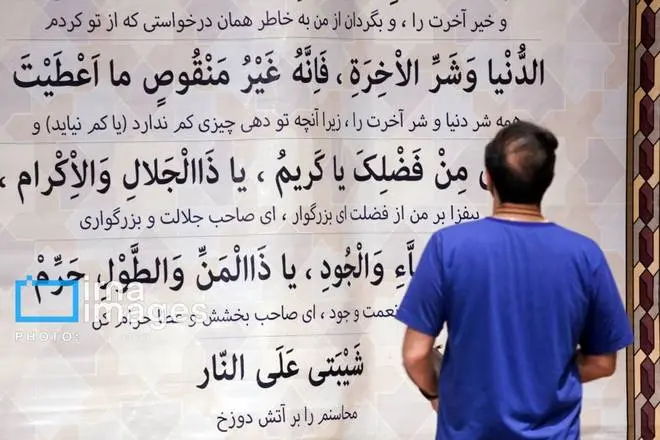 و خیر آخرت را ، و بگردان از من به خاطر همان درخواستی که از تو کردم
الدُّنْيا وَشَرِّ الْاخِرَةِ ، فَاِنَّهُ غَيْرُ مَنْقُوصٍ ما اَعْطَيْتَ
همه شر دنیا و شر آخرت را ، زیرا آنچه تو دهی چیزی کم ندارد (یا کم نیاید) و
مِنْ فَضْلِکَ یا کَریمُ ، یا ذَاالْجَلالِ وَالْاِکْرام ،
بیفزا بر من از فضلت ای بزرگوار ، ای صاحب جلالت و بزرگواری
وَالْجُودِ ، یا ذَاالْمَنِّ وَالطَّوْلِ حَرِّمْ
نعمت و جود ، ای صاحب بخشش و عطا حرام کن
شَیْبَتی عَلَی النّار
محاسنم را بر آتش دوزخ
iina images
PHOTO: